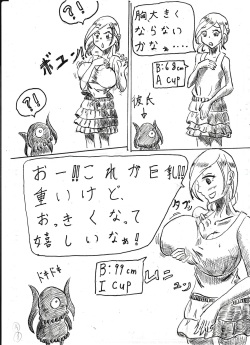 胸大きく
ならない
かなぁ....
B:68cm
A cup
彼氏
↓
?!
ボユン!!
?!
おー!!これが巨乳!!
重いけど、
おっきくなって
嬉しいなぁ!
タプ
B:99cm
I cup
ドキドキ